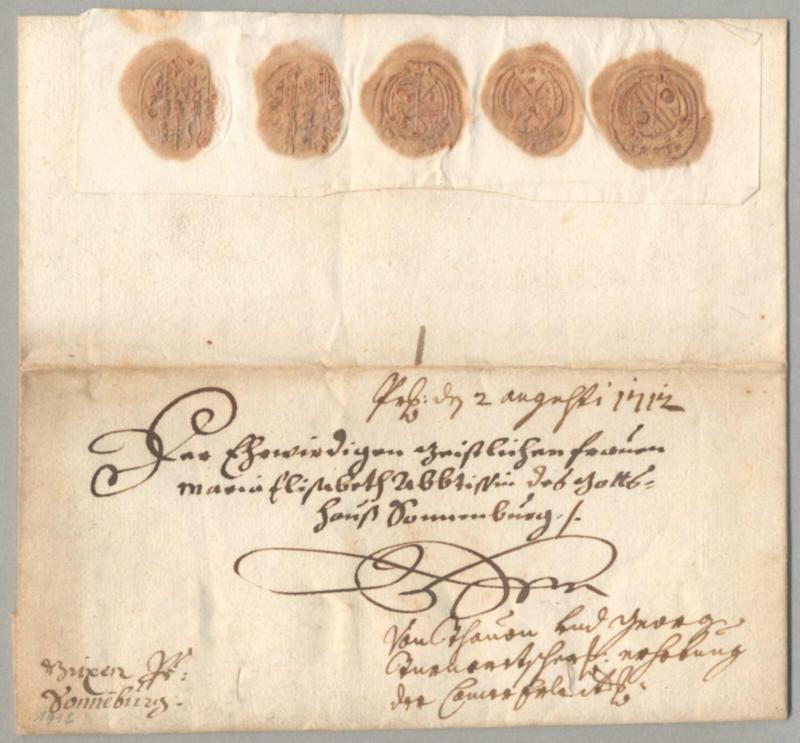 den 2 augusti 1712
Der Ehrwirdigen Geistlichen Frauen
Maria Elisabeth Abbtissin des Gotts-
hauß Sonnenburg ./.
Von Thauon Und Georg
erhebung
der
Brixen
Sonneburg.
1712